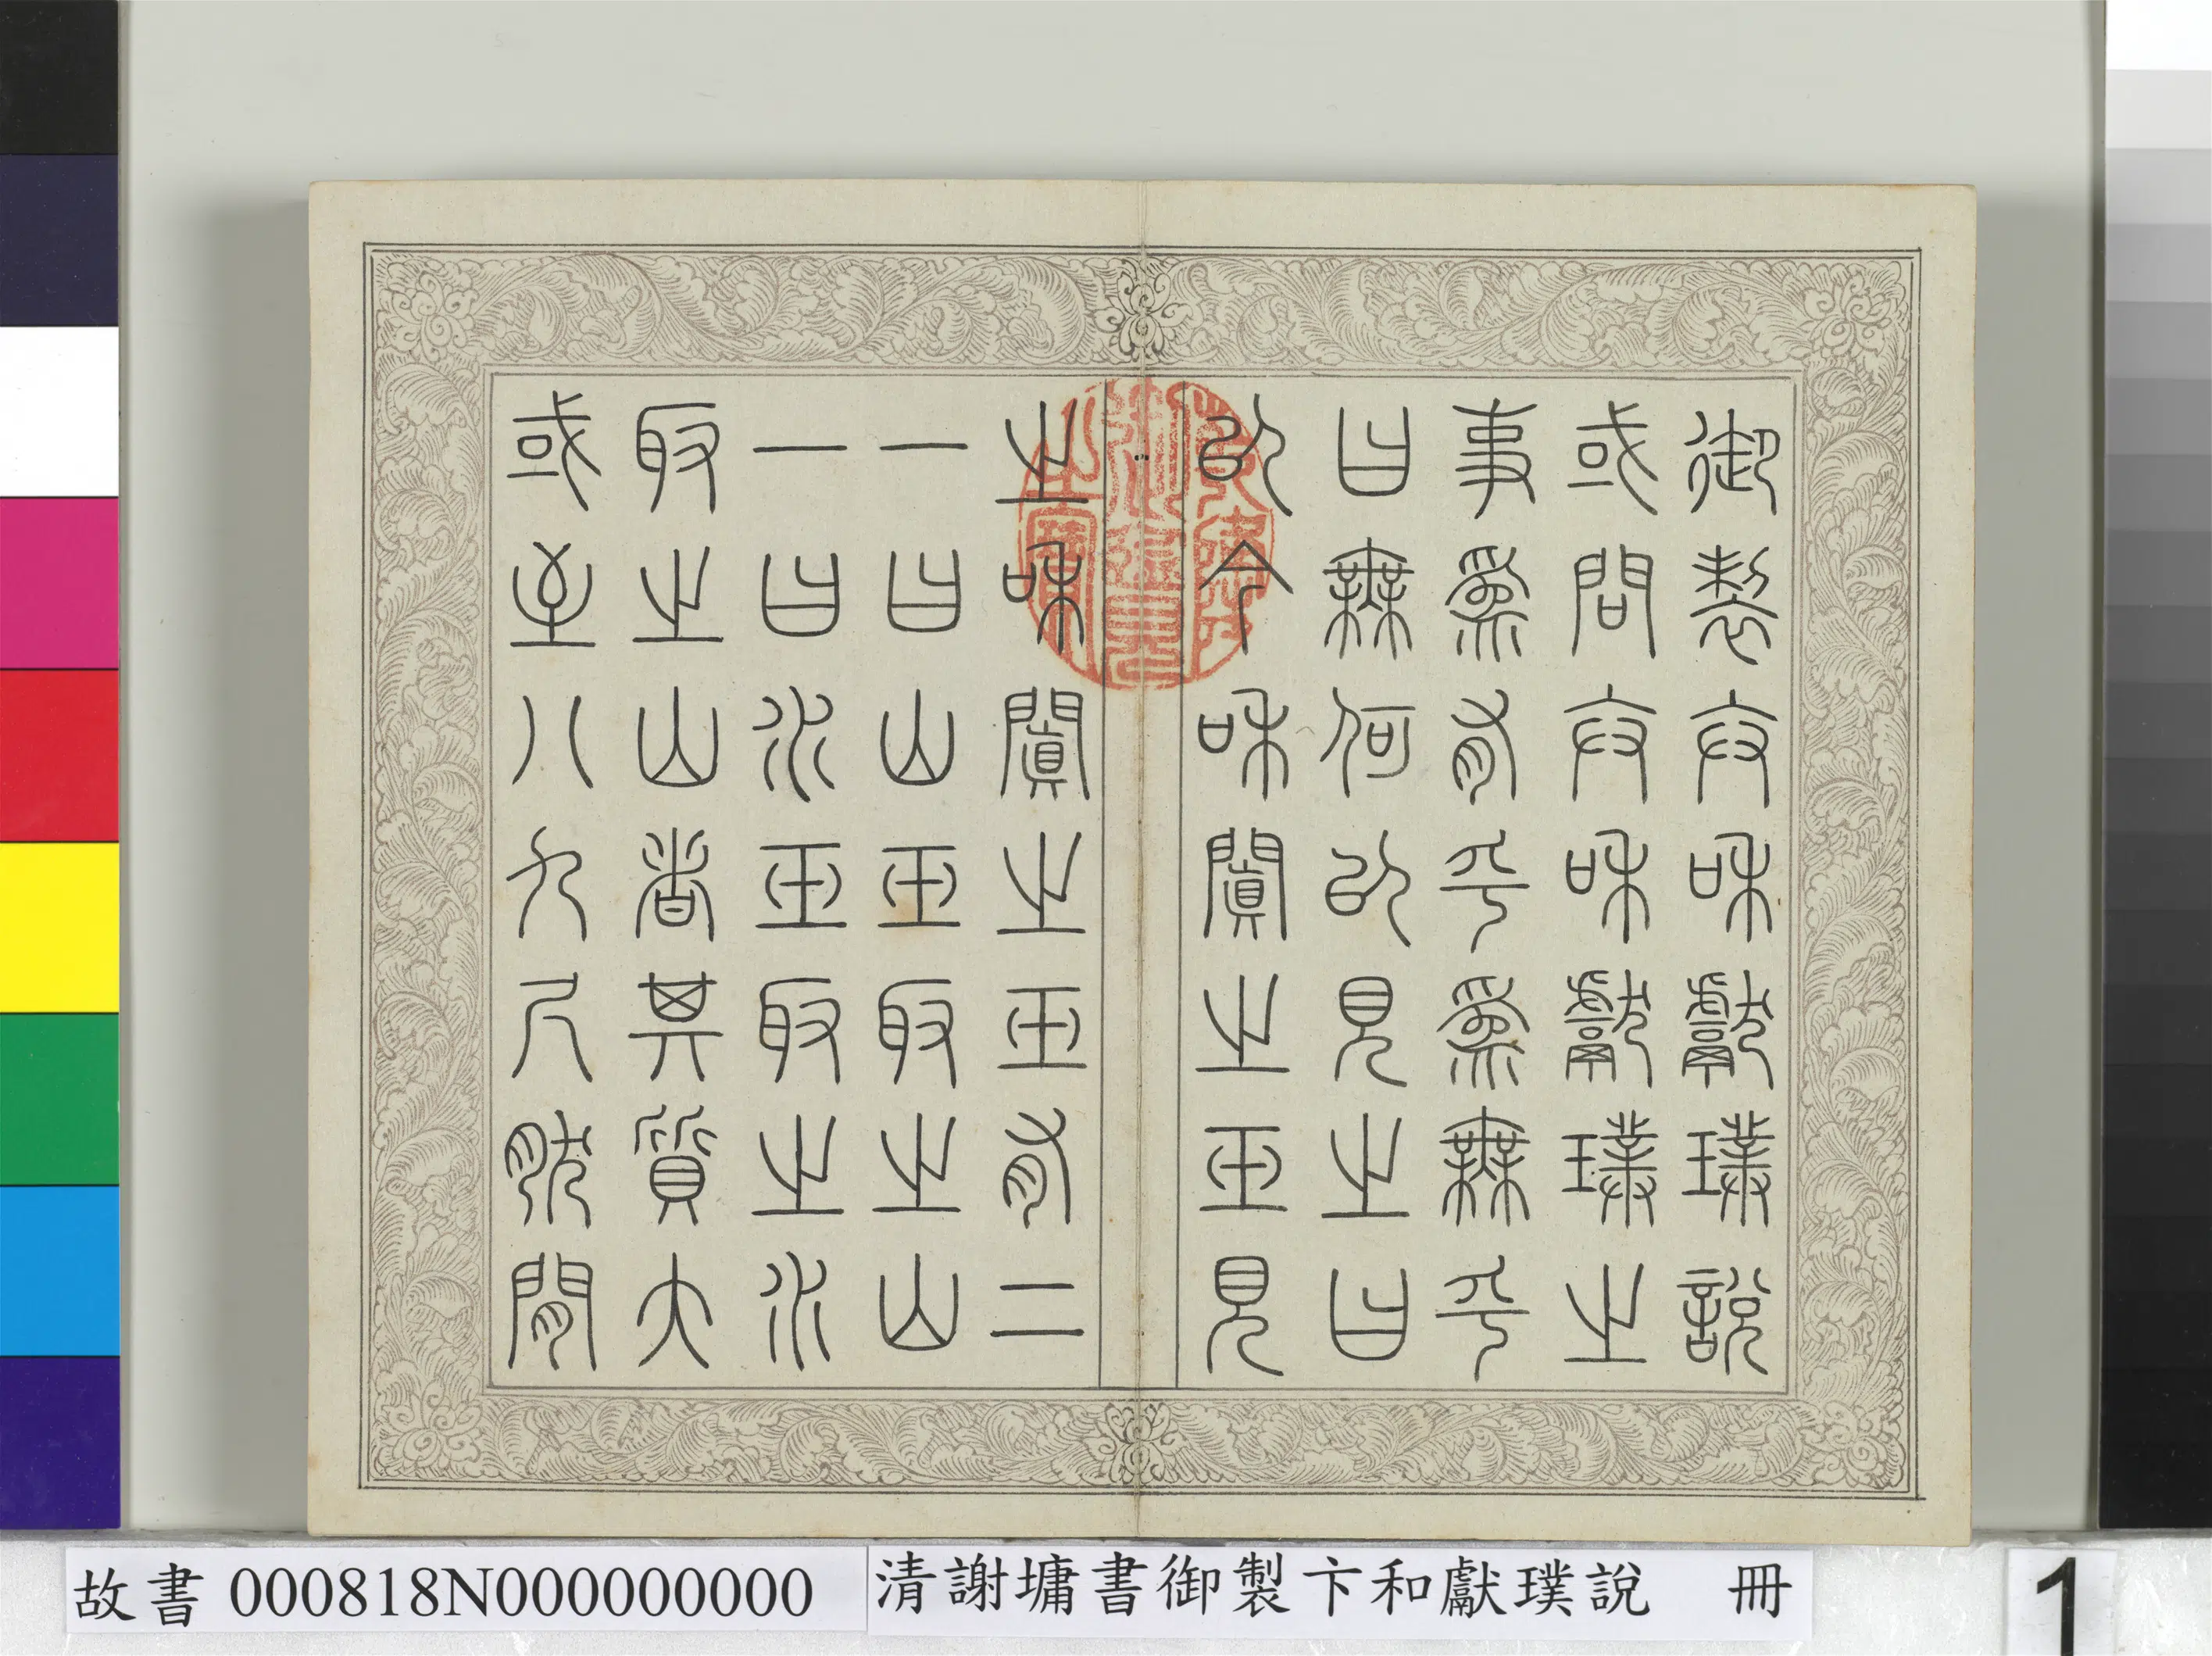 御製卞和獻璞說
或問卞和獻璞之
事爲有乎爲無乎
曰無何以見之曰
以今和闐之玉見
之和闐之玉有二
一曰山玉取之山
一曰水玉取之水
取之山者其質大
或至八九尺然閒
御覽之寶
故書 000818N000000000
清謝墉書御製卞和獻璞說 冊
1